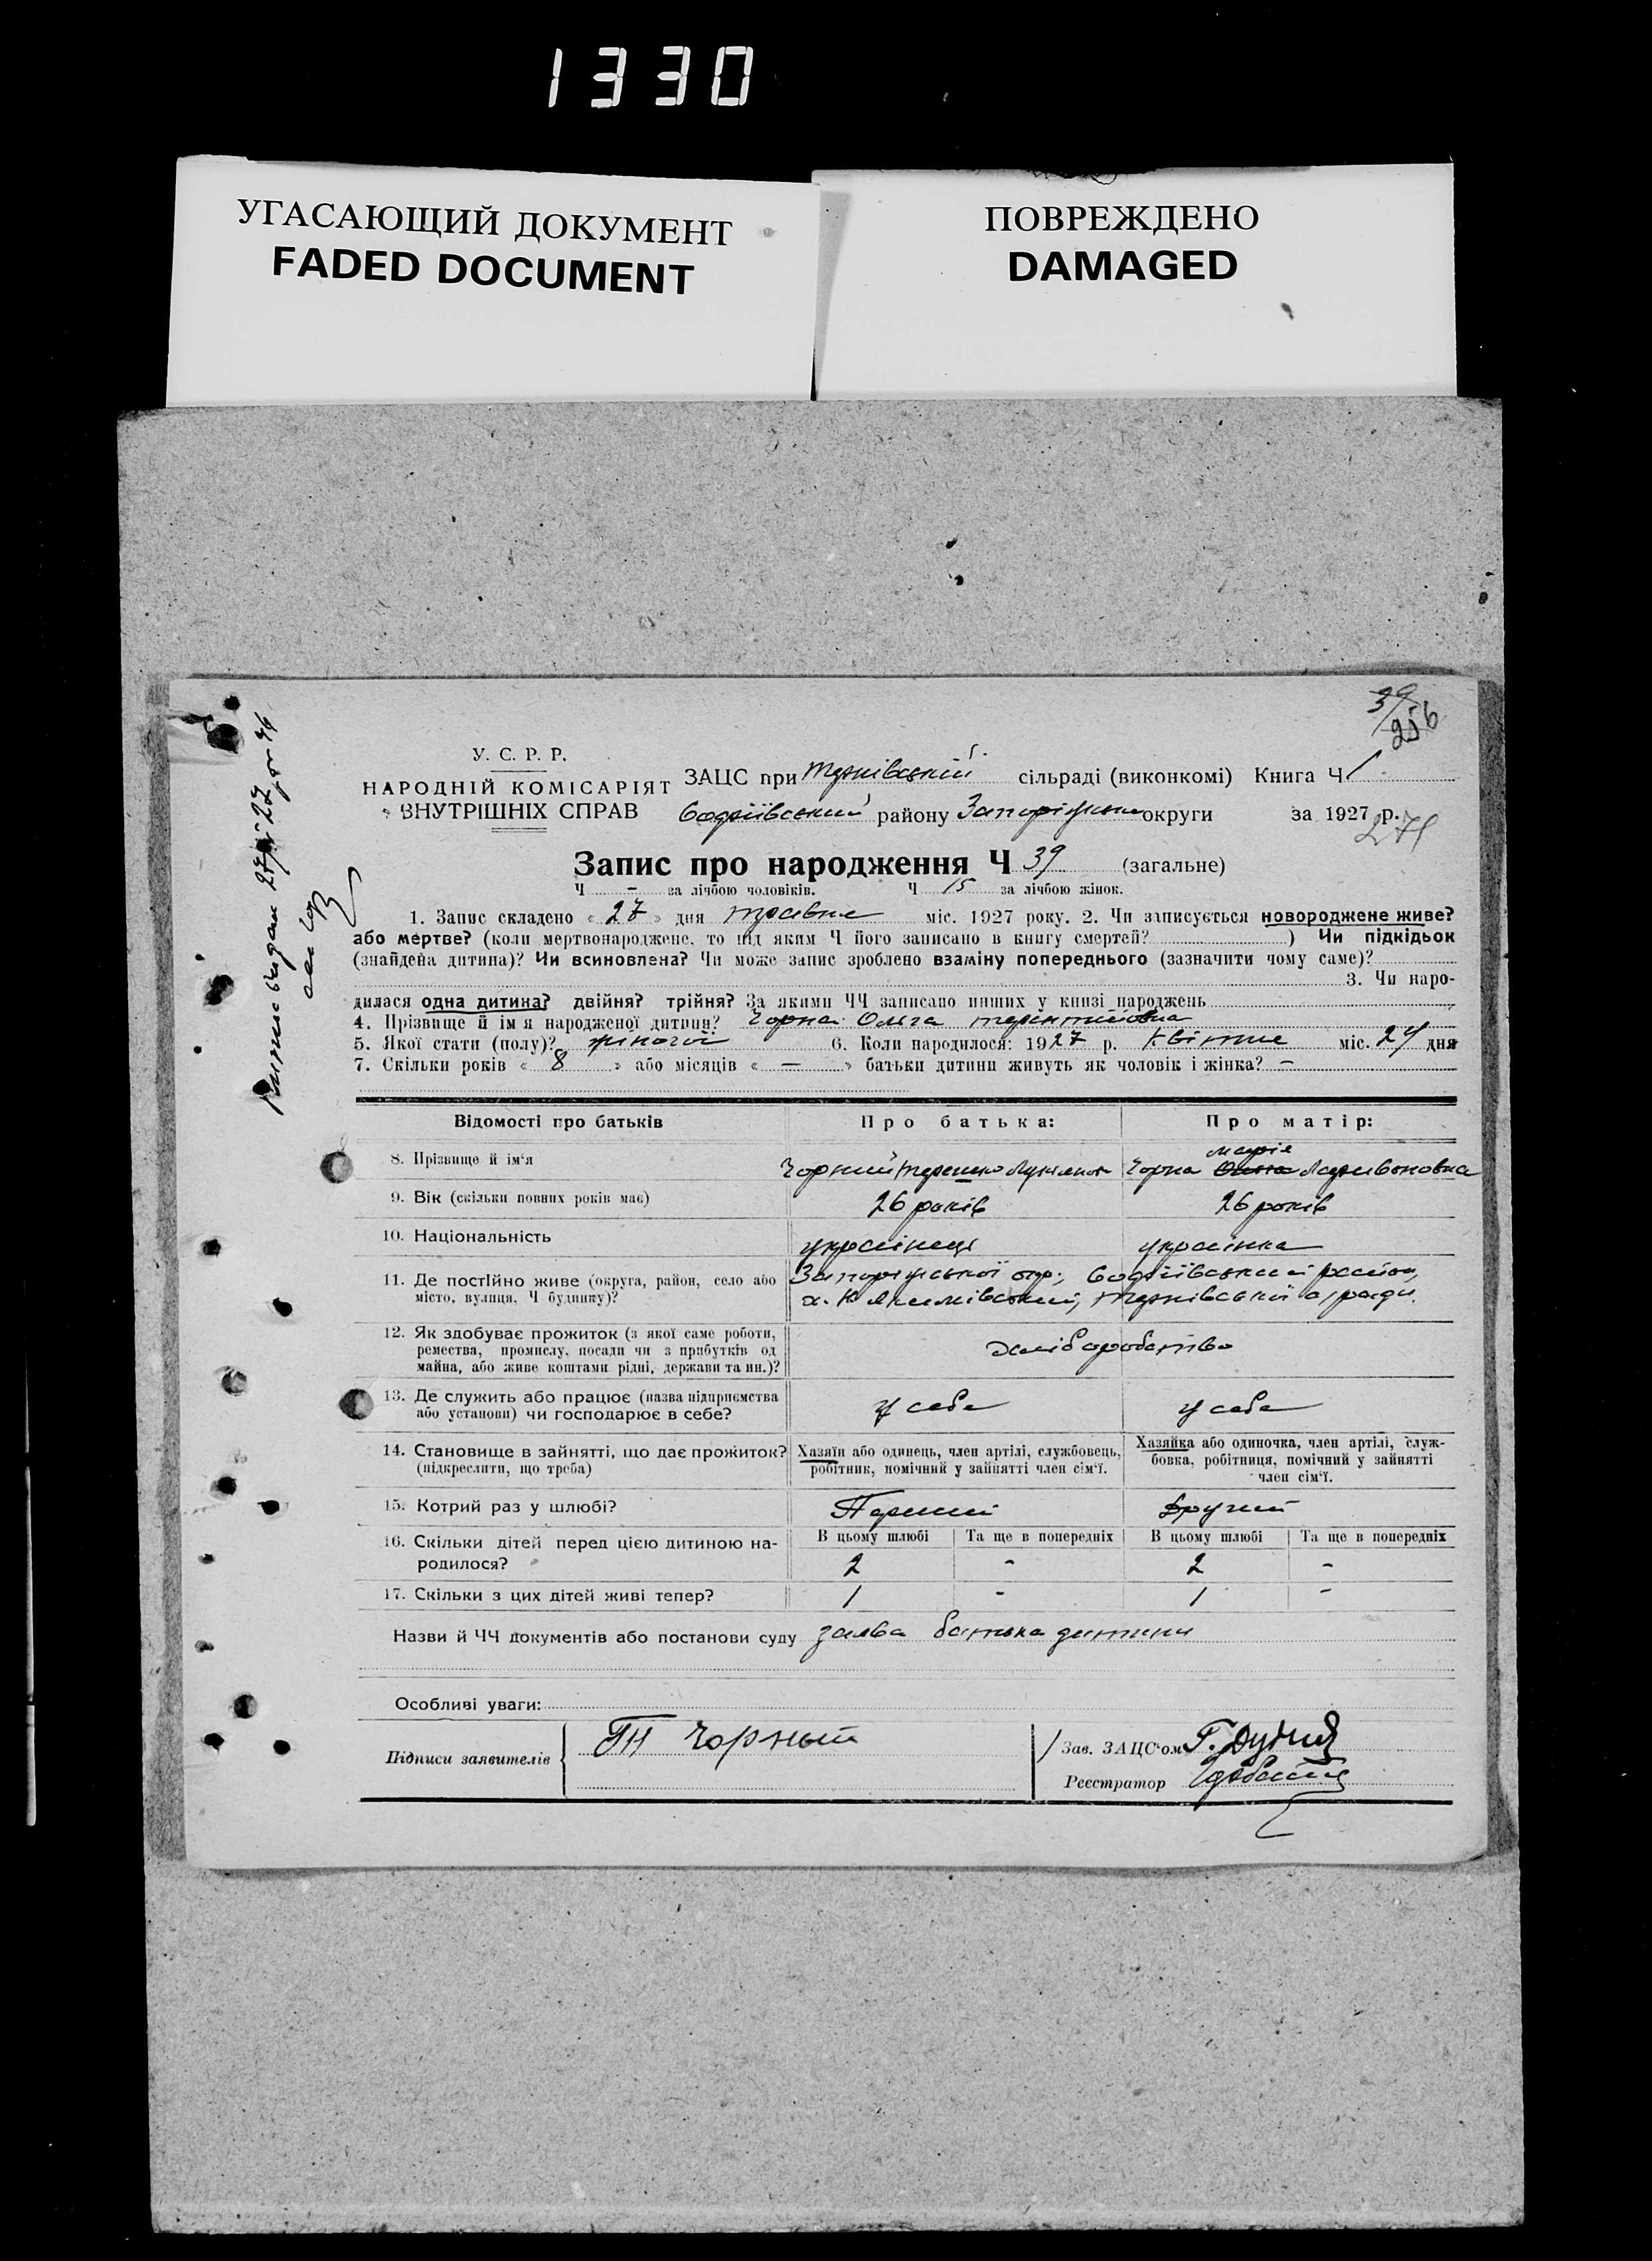 1330
УГАСАЮЩИЙ ДОКУМЕНТ
FADED DOCUMENT
ПОВРЕЖДЕНО
DAMAGED
39
256
У. С. Р. Р.
НАРОДНІЙ КОМІСАРІЯТ
ВНУТРІШНІХ СПРАВ
ЗАЦС при сільраді (виконкомі) Книга Ч 1
району округи за 1927 р.
271
Запис про народження Ч 39 (загальне)
Ч – за лічбою чоловіків. Ч 15 за лічбою жінок.
1. Запис складено « 27 » дня травня міс. 1927 року. 2. Чи записується новороджене живе?
або мертве? (коли мертвонароджене, то під яким Ч його записано в книгу смертей? ) Чи підкідьок
(знайдена дитина)? Чи всиновлена? Чи може запис зроблено взаміну попереднього (зазначити чому саме)?
3. Чи наро-
дилася одна дитина? двійня? трійня? За якими ЧЧ записано инших у книзі народжень
4. Прізвище й ім'я народженої дитини? Чорна Ольга терентіївна
5. Якої стати (полу)? жіночої 6. Коли народилося: 1927 р. квітня міс. 24 дня
7. Скільки років « 8 » або місяців « — » батьки дитини живуть як чоловік і жінка? –
Відомості про батьків
Про батька:
Про матір:
8. Прізвище й ім'я
Чорний
марія
Чорна
9. Вік (скільки повних років має)
26 років
26 років
10. Національність
українець
українка
11. Де постійно живе (округа, район, село або
місто, вулиця, Ч будинку)?
Запоріжської окр;
12. Як здобуває прожиток (з якої саме роботи,
ремества, промислу, посади чи з прибутків од
майна, або живе коштами рідні, держави та ин.)?
хліборобство
13. Де служить або працює (назва підприємства
або установи) чи господарює в себе?
у себе
у себе
14. Становище в зайнятті, що дає прожиток?
(підкреслити, що треба)
Хазяїн або одинець, член артілі, службовець,
робітник, помічний у зайнятті член сім'ї.
Хазяйка або одиночка, член артілі, служ-
бовка, робітниця, помічний у зайнятті
член сім'ї.
15. Котрий раз у шлюбі?
Перший
Другий
16. Скільки дітей перед цією дитиною на-
родилося?
В цьому шлюбі
Та ще в попередніх
В цьому шлюбі
Та ще в попередніх
2
-
2
-
17. Скільки з цих дітей живі тепер?
1
-
1
-
Назви й ЧЧ документів або постанови суду заява батька дитини
Особливі уваги:
Підписи заявителів
ТН Чорный
Зав. ЗАЦС'ом
Реєстратор